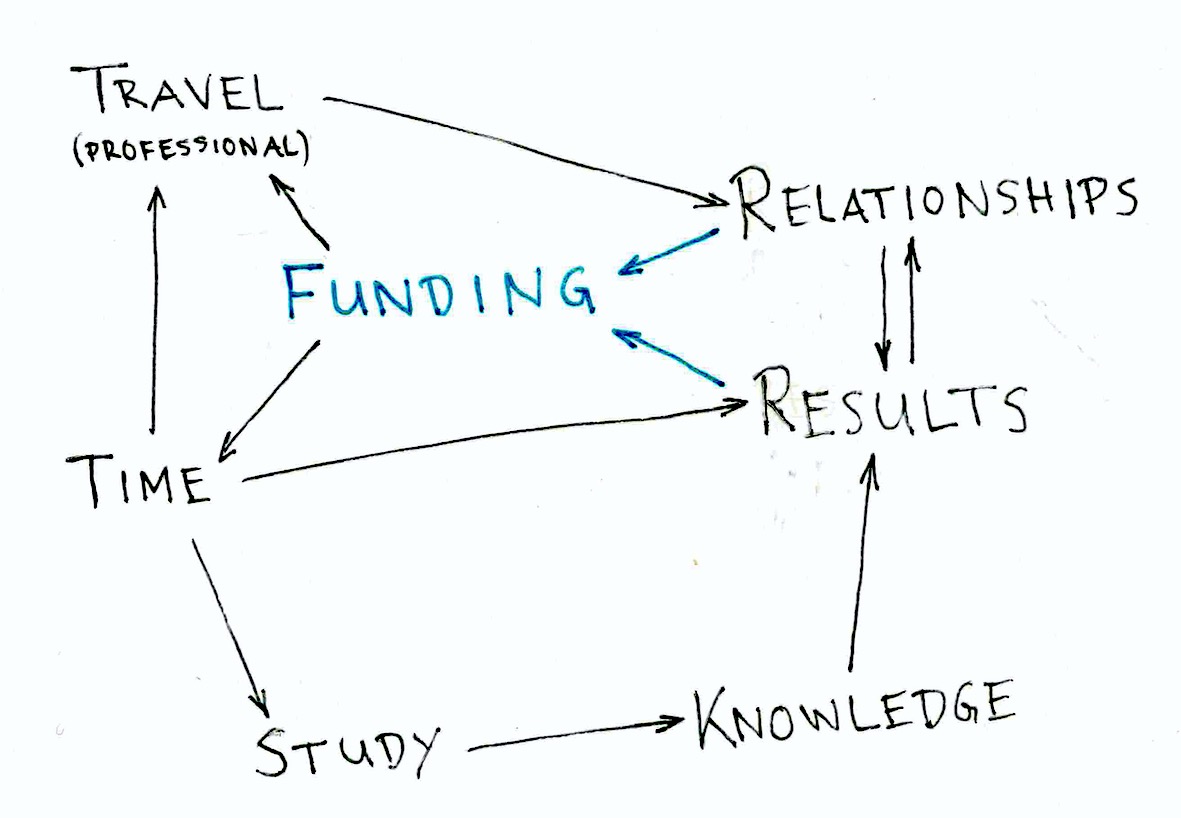 TRAVEL
(PROFESSIONAL)
RELATIONSHIPS
FUNDING
RESULTS
TIME
STUDY
KNOWLEDGE